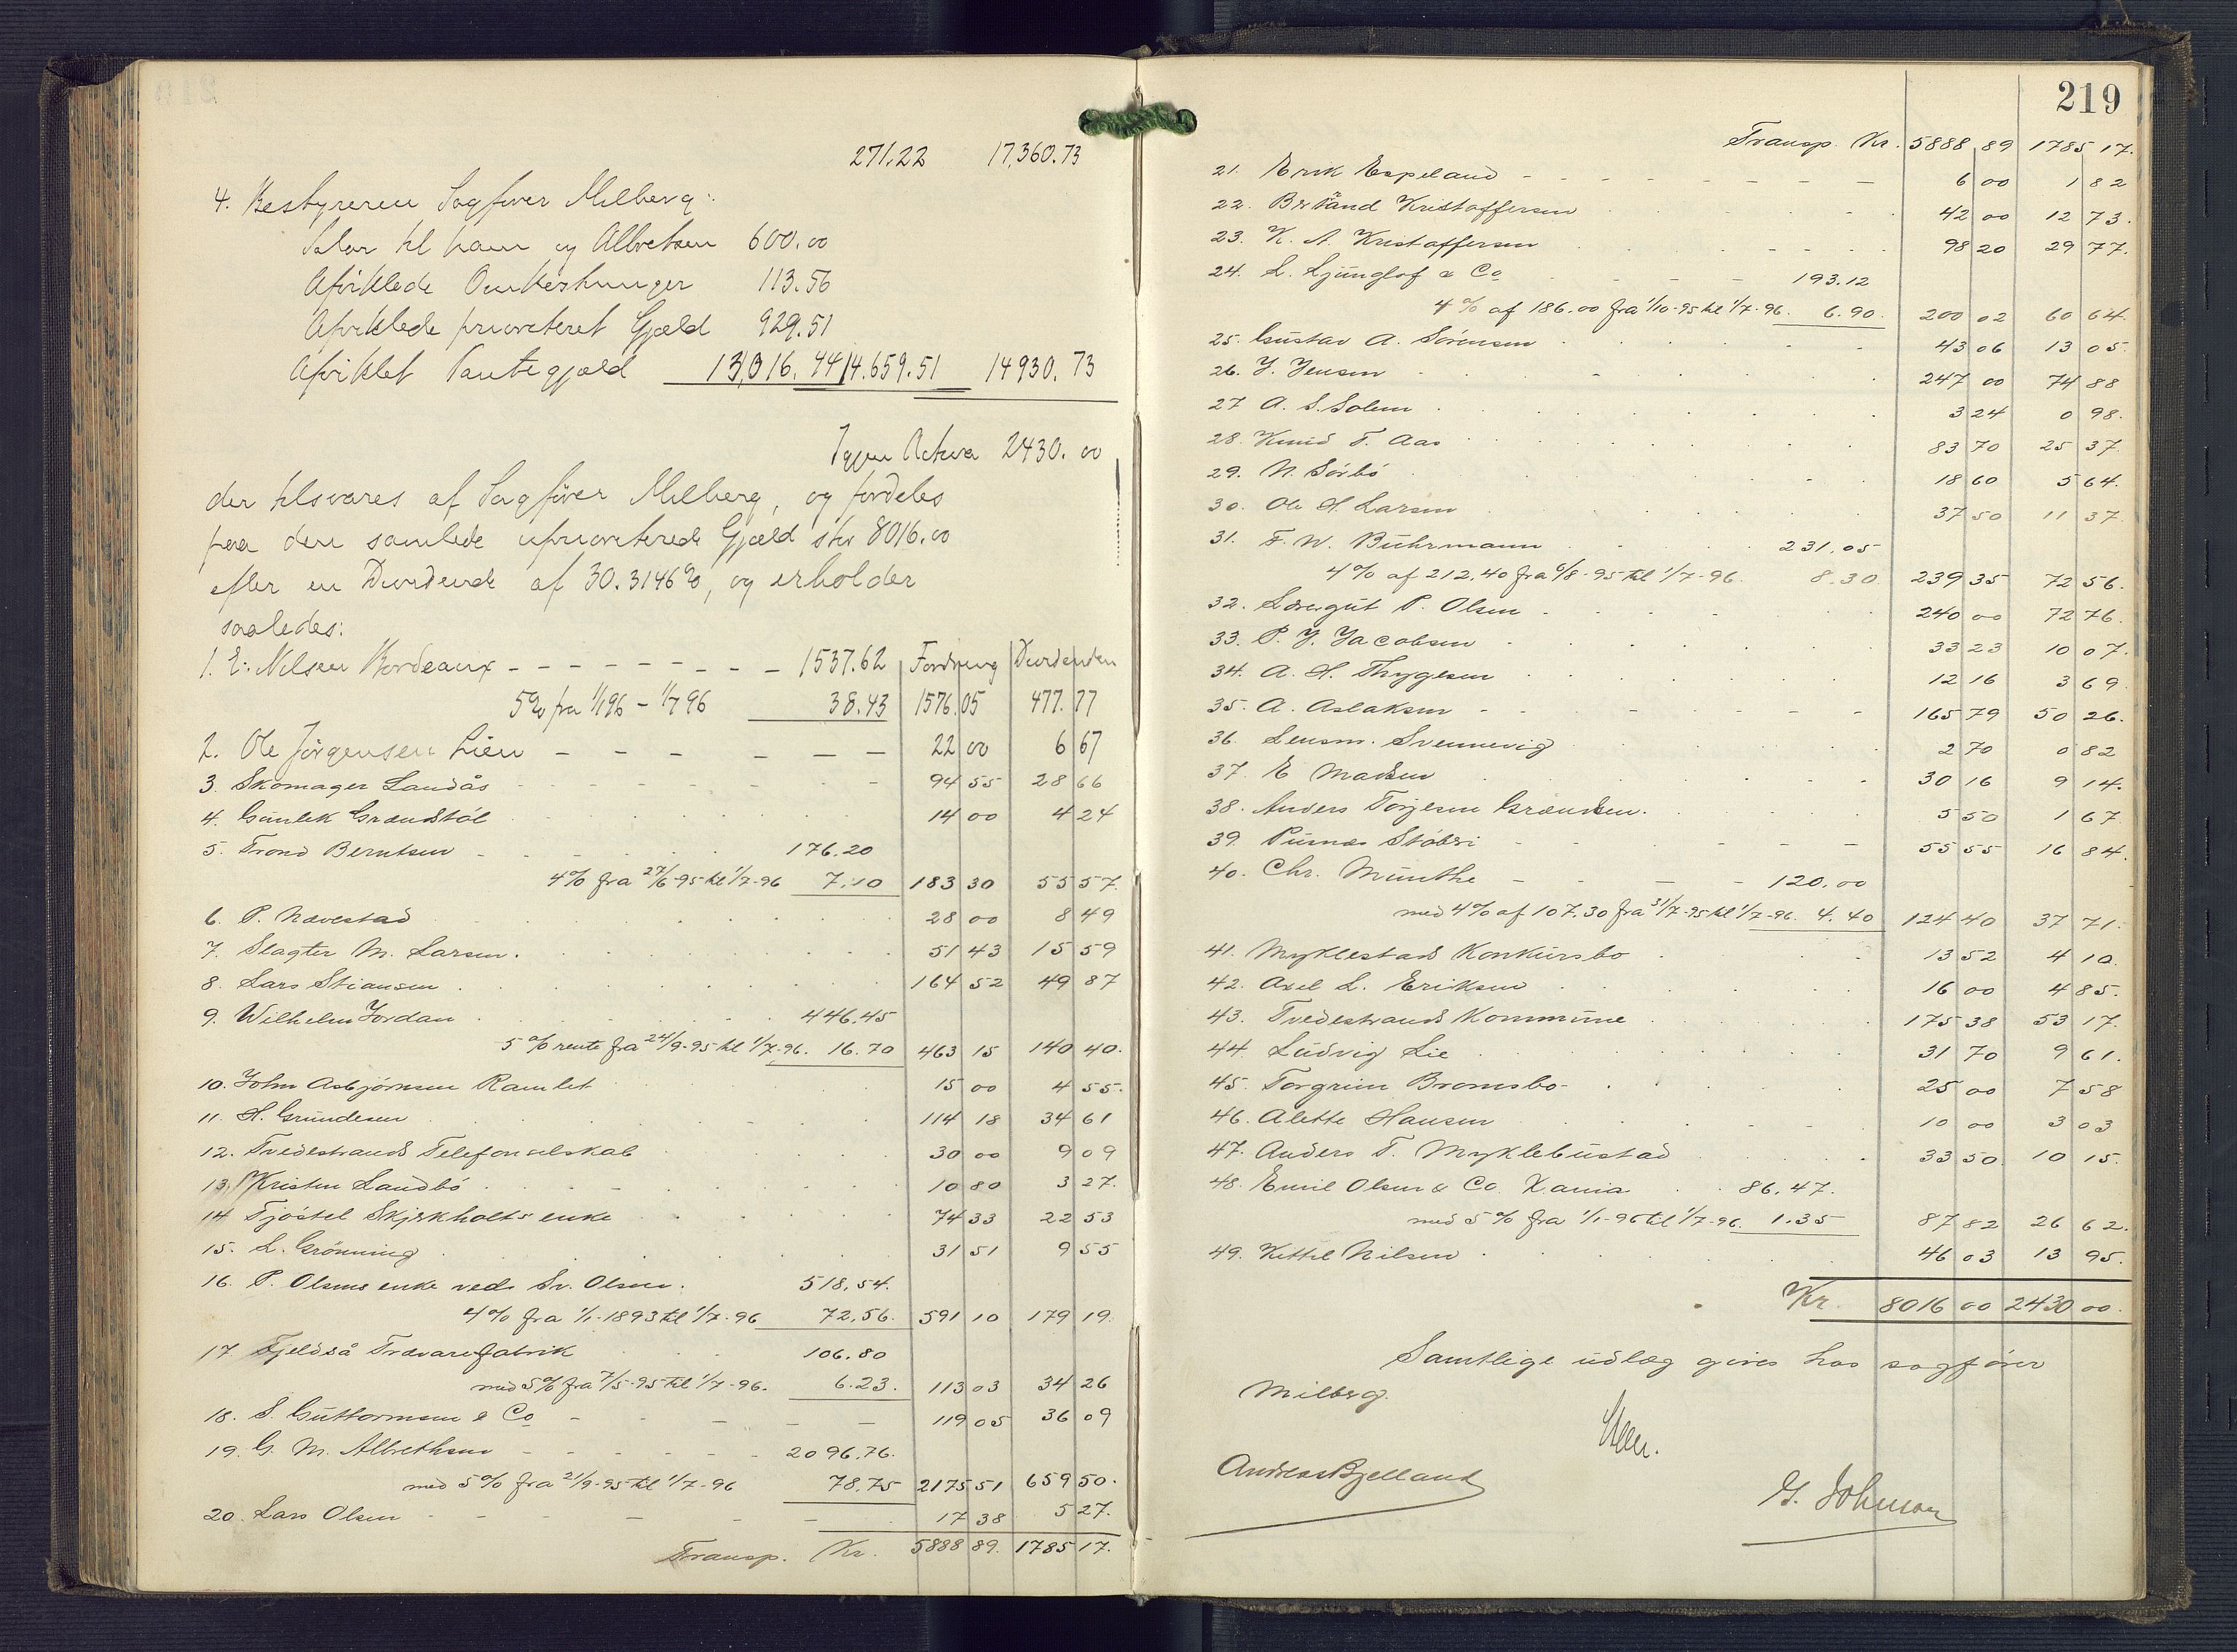 271.22 17,360.73
4. Bestyreren Sagfører Milberg:
Salær til ham og Albretsen 600.00
Afviklede Omkostninger 113.56
Afviklede prioriteret Gjæld 929.51
Afviklet Pantegjæld 13,016.44 14.659.51 14930.73
Igjen Activa 2430.00
der tilsvares af Sagfører Milberg, og fordeles
paa den samlede uprioriterede Gjæld stor 8016.00
efter en Dividende af 30.3146%, og erholder
saaledes:
1. E. Nilsen Bordeaux - - - 1537.62 Fordring Dividenden
5% fra 1/1 96 - 1/7 96 38.43 1576.05 477.77
2. Ole Jörgensen Lien - - - 22 00 6 67
3. Skomager Landås 94 55 28 66
4. Gunlek Grændstöl 14 00 4 24
5. Trond Berntsen 176.20
4% fra 27/6-95 til 1/7-96 7.10 183 30 55 57.
6. P. Nævestad 28 00 8 49
7. Slagter M. Larsen. 51 43 15 59
8. Lars Stiansen 164 52 49 87
9. Wilhelm Jordan 446.45
5% rente fra 24/9-95 til 1/7-96. 16.70 463 15 140 40.
10. John Asbjörnsen Ramlet 15 00 4 55.
11. H. Gundersen 114 18 34 61
12. Tvedestrands Telefonselskab 30 00 9 09
13. Kristen Landbö 10 80 3 27.
14 Tjöstel Skjerkholts enke 74 33 22 53
15. L. Grönning 31 51 9 55
16. P. Olsens enke ved Sv. Olsen. 518.54.
4% fra 1/1-1893 til 1/7-96 72.56. 591 10 179 19.
17. Fjeldså Trævarefabrik 106.80
med 5% fra 7/5-95 til 1/7-96. 6.23. 113 03 34 26
18. S. Guttormsen & Co - - - 119 05 36 09
19. G. M. Albrethsen - - - 2096.76.
med 5% fra 21/9-95 til 1/7-96 78.75 2175 51 659 50.
20. Lars Olsen - - - 17 38 5 27.
Transp. Kr. 5888 89. 1785 17.
219
Transp. Kr. 5888 89 1785 17.
21. Erik Espeland - - - 6 00 1 82
22. Kristoffersen 42 00 12 73.
23. K. A. Kristoffersen 98 20 29 77.
24. L. Ljunglof & Co - - - 193.12
4% af 186.00 fra 1/10-95 til 1/7-96. 6.90. 200 02 60 64.
25. Gustav A. Sörensen 43 06 13 05.
26. J. Jensen 247 00 74 88
27 A. S. Solem 3 24 0 98.
28. Knud T. Aas 83 70 25 37.
29. N. Sörbö 18 60 5 64.
30. Ole H. Larsen 37 50 11 37
31. F. W. Bührmann 231.05
4% af 212.40 fra 6/8-95 til 1/7-96. 8.30 239 35 72 56.
32. Lovergut P. Olsen 240 00 72 76.
33. P. J. Jacobsen 33 23 10 07.
34. A. H. Thygesen 12 16 3 69.
35. A. Aslaksen - - - 165 79 50 26.
36. Lensm. Svennevig 2 70 0 82
37. E Madsen 30 16 9 14.
38. Anders Torjesen Grændsen. 5 50 1 67.
39. Pusnes Stöberi - - - 55 55 16 84.
40. Chr. Munthe - - - 120.00
med 4% af 107.30 fra 31/7-95 til 1/7-96. 4.40 124 40 37 71.
41. Myklestads Konkursbo 13 52 4 10.
42. Axel L. Eriksen 16 00 4 85.
43. Tvedestrands Kommune 175 38 53 17.
44. Ludvig Lie 31 70 9 61.
45. Torgrim Bromsbo 25 00 7 58
46. Alette Hansen 10 00 3 03
47. Anders T. Myklebustad 33 50. 10 15.
48. Emil Olsen & Co. Xania 86.47.
med 5% fra 1/1-96 til 1/7-96. 1.35 87 82 26 62.
49. Kettil Nilsen 46 03 13 95.
Kr. 8016 00 2430 00.
Samtlige udlæg gives hos sagförer
Milberg.
Andreas Bjelland
G. Johnson